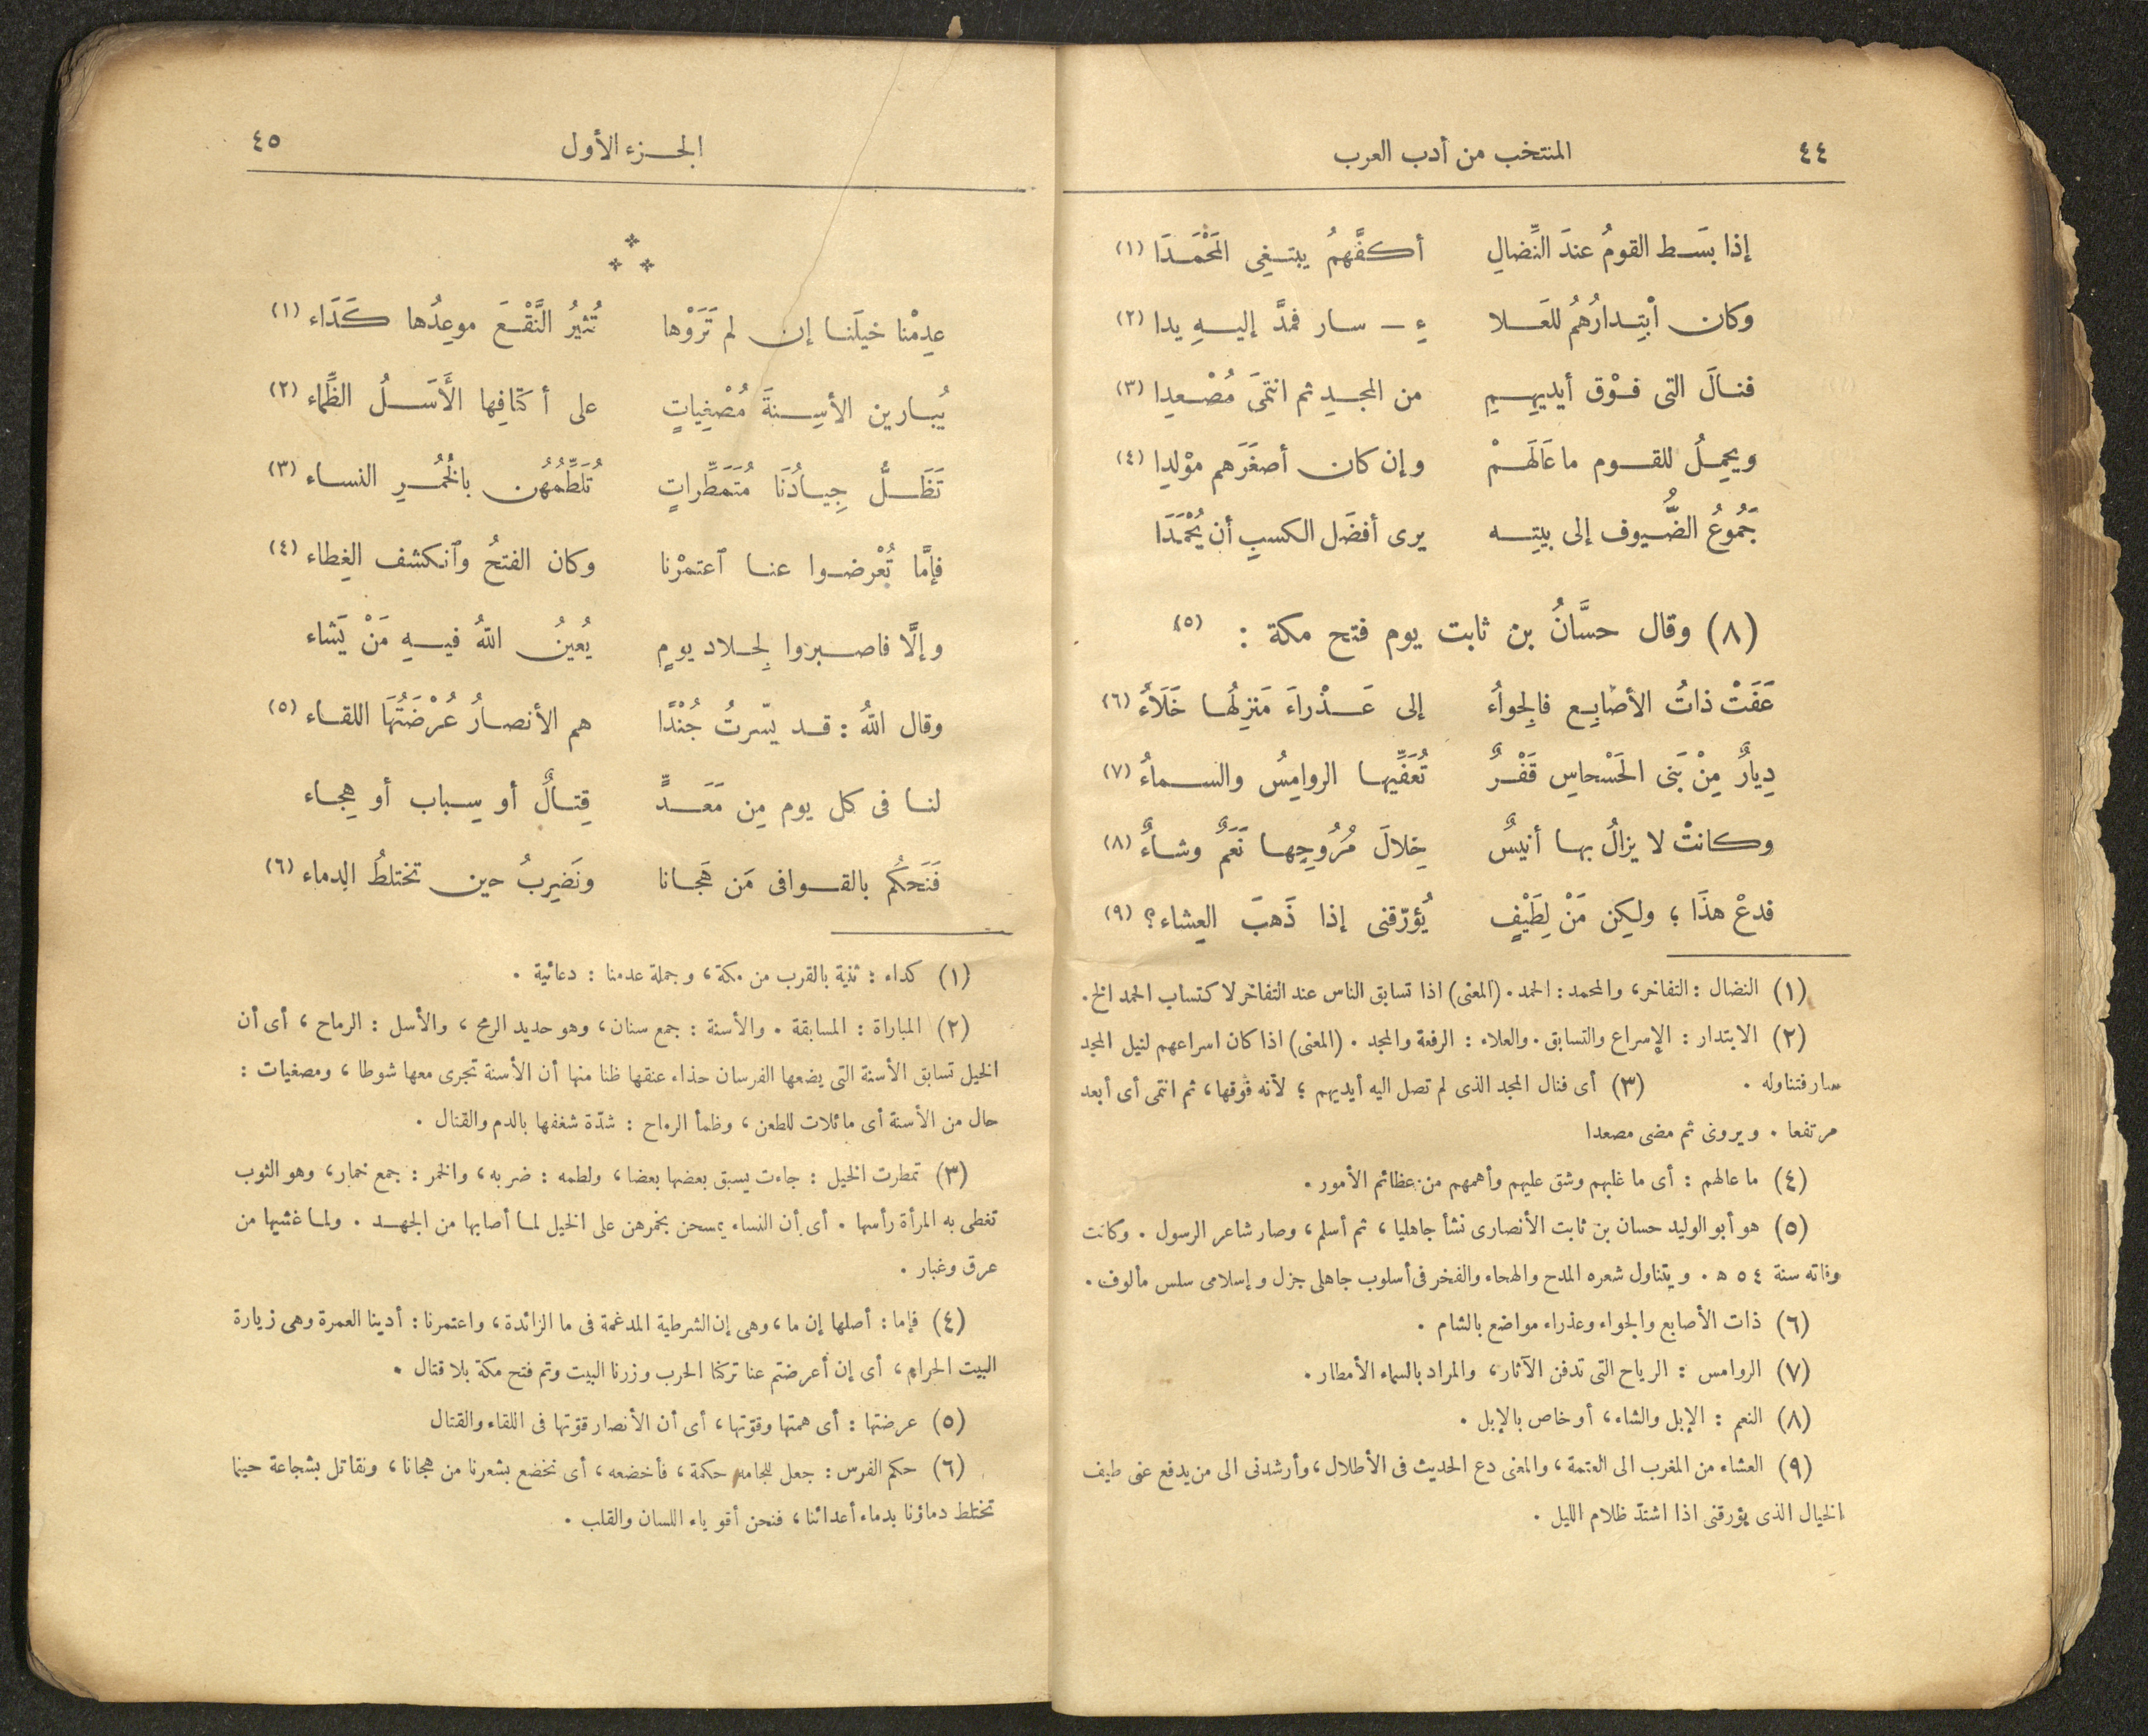 ٤٤ المنتخب من أدب العرب
إذا بسَط القومُ عندَ النِّضالِ أكفَّهمُ يبتغِى المَحْمَدَا (١)
وكان اْبتِدارُهُمُ للعَلا ءِ - سار فمدَّ إليهِ يدا (٢)
فنالَ التى فوْق أيديهِمِ من المجدِ ثم انتمَى مُصْعدِا (٣)
ويحمِلُ للقوم ما عَالَهَمْ وإن كان أصغَرَهم موْلدِا (٤)
جَمُوعُ الضُّيوف إلى بيتِه يرى أفضَل الكسبِ أن يُحْمَدَا
(٨) وقال حسَّانُ بن ثابت يوم فتح مكة : (٥)
عَفَتْ ذاتُ الأصابِعِ فالجِواُء إلى عَذْراءَ مَنزِلُها خَلَاُء (٦)
دِيارٌ مِنْ بَنى الحَسْحاسِ قَفْرٌ تُعَفِّيها الروامِسُ والسماءُ (٧)
وكانتْ لا يزالُ بها أنيسٌ خِلالَ مُرُوجِها نَعَمٌ وشاءٌ (٨)
فدعْ هذَا ؛ ولكِن مَنْ لِطَيْفٍ يُؤرّقنى إذا ذَهبَ العِشاء ؟ (٩)
(١) النضال : التفاخر، والمحمد : الحمد . (المعنى) اذا تسابق الناس عند التفاخر لاكتساب الحمد الخ .
(٢) الابتدار : الإسراع والتسابق . والعلاء : الرفعة والمجد . (المعنى) اذا كان اسراعهم لنيل المجد
سار فتناوله . (٣) أى فنال المجد الذى لم تصل اليه أيديهم ؛ لأنه فوقها، ثم انتمى أى أبعد
مرتفعا . ويروى ثم مضى مصعدا
(٤) ما عالهم : أى ما غلبهم وشق عليهم وأهمهم من عظائم الأمور .
(٥) هو أبو الوليد حسان بن ثابت الأنصارى نشأ جاهليا، ثم أسلم، وصار شاعر الرسول . وكانت
وفاته سنة ٥٤ ه . ويتناول شعره المدح والهجاء والفخر فى أسلوب جاهلى جزل وإسلامى سلس مألوف .
(٦) ذات الأصابع والجواء وعذراء مواضع بالشام .
(٧) الروامس : الرياح التى تدفن الآثار، والمراد بالسماء الأمطار .
(٨) النعم : الإبل والشاء، أو خاص بالإبل .
(٩) العشاء من المغرب الى العتمة، والمعنى دع الحديث فى الأطلال، وأرشدنى الى من يدفع عنى طيف
الخيال الذى يؤرقنى اذا اشتدّ ظلام الليل .
الجزء الأول ٤٥
عدِمْنا خيلَنا إن لم تَرَوْها تُثيرُ النَّقْعَ موعِدُها كَدَاء (١)
يُبارين الأسِنةَ مُصْغِياتٍ على أكتَافِها الأَسَلُ الظِّماء (٢)
تَظَلُّ جِيادُنَا مُتَمَطِّراتٍ تُلَطِّمُهُن بالخُمُرِ النساء (٣)
فإمَّا تُعْرضوا عنا ٱعتمرْنا وكان الفتحُ وٱنكشف الغِطاء (٤)
وإلَّا فاصبروا لِجلاد يومٍ يُعينُ اللهُ فيهِ مَنْ يَشاء
وقال اللهُ : قد يسّرتُ جُنْدًا هم الأنصارُ عُرْضَتُهَا اللقاء (٥)
لنا فى كل يوم مِن مَعَدٍّ قِتالٌ أو سِباب أو هِجاء
فَنَحكُم بالقوافى مَن هَجانا ونَضرِبُ حين تختلطُ الدِماء (٦)
(١) كداء : ثنية بالقرب من مكة، وجملة عدمنا : دعائية .
(٢) المباراة : المسابقة . والأسنة : جمع سنان، وهو حديد الرمح، والأسل : الرماح، أى أن
الخيل تسابق الأسنة التى يضعها الفرسان حذاء عنقها ظنا منها أن الأسنة تجرى معها شوطا، ومصغيات :
حال من الأسنة أى مائلات للطعن، وظمأ الرماح : شدّة شغفها بالدم والقتال .
(٣) تمطرت الخيل : جاءت يسبق بعضها بعضا، ولطمه : ضربه، والخمر : جمع خمار، وهو الثوب
تغطى به المرأة رأسها . أى أن النساء يمسحن بخمرهن على الخيل لما أصابها من الجهد . ولما غشيها من
عرق وغبار .
(٤) فإما : أصلها إن ما، وهى إن الشرطية المدغمة فى ما الزائدة، واعتمرنا : أدينا العمرة وهى زيارة
البيت الحرام، أى إن أعرضتم عنا تركنا الحرب وزرنا البيت وتم فتح مكة بلا قتال .
(٥) عرضتها : أى همتها وقوّتها، أى أن الأنصار قوّتها فى اللقاء والقتال
(٦) حكم الفرس : جعل للجامه حكمة، فأخضعه، أى نخضع بشعرنا من هجانا، ونقاتل بشجاعة حينما
تختلط دماؤنا بدماء أعدائنا، فنحن أقوياء اللسان والقلب .